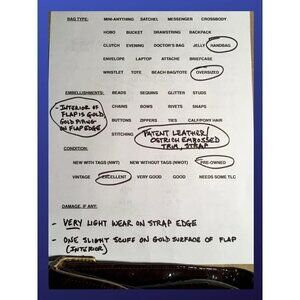 BAG TYPE: MINI-ANYTHING SATCHEL MESSENGER CROSSBODY
HOBO BUCKET DRAWSTRING BACKPACK
CLUTCH EVENING DOCTOR'S BAG JELLY HANDBAG
ENVELOPE LAPTOP ATTACHE BRIEFCASE
WRISTLET TOTE BEACH BAG/TOTE OVERSIZED
EMBELLISHMENTS: BEADS SEQUINS GLITTER STUDS
CHAINS BOWS RIVETS SNAPS
BUTTONS ZIPPERS TIES CALF/PONY HAIR
STITCHING
- INTERIOR OF
FLAP IS GOLD,
GOLD PIPING
ON FLAP EDGE
PATENT LEATHER/
OSTRICH EMBOSSED
TRIM, STRAP
CONDITION:
NEW WITH TAGS (NWT) NEW WITHOUT TAGS (NWOT) PRE-OWNED
VINTAGE EXCELLENT VERY GOOD GOOD NEEDS SOME TLC
DAMAGE, IF ANY:
- VERY LIGHT WEAR ON STRAP EDGE
- ONE SLIGHT SCUFF ON GOLD SURFACE OF FLAP
(INTERIOR)